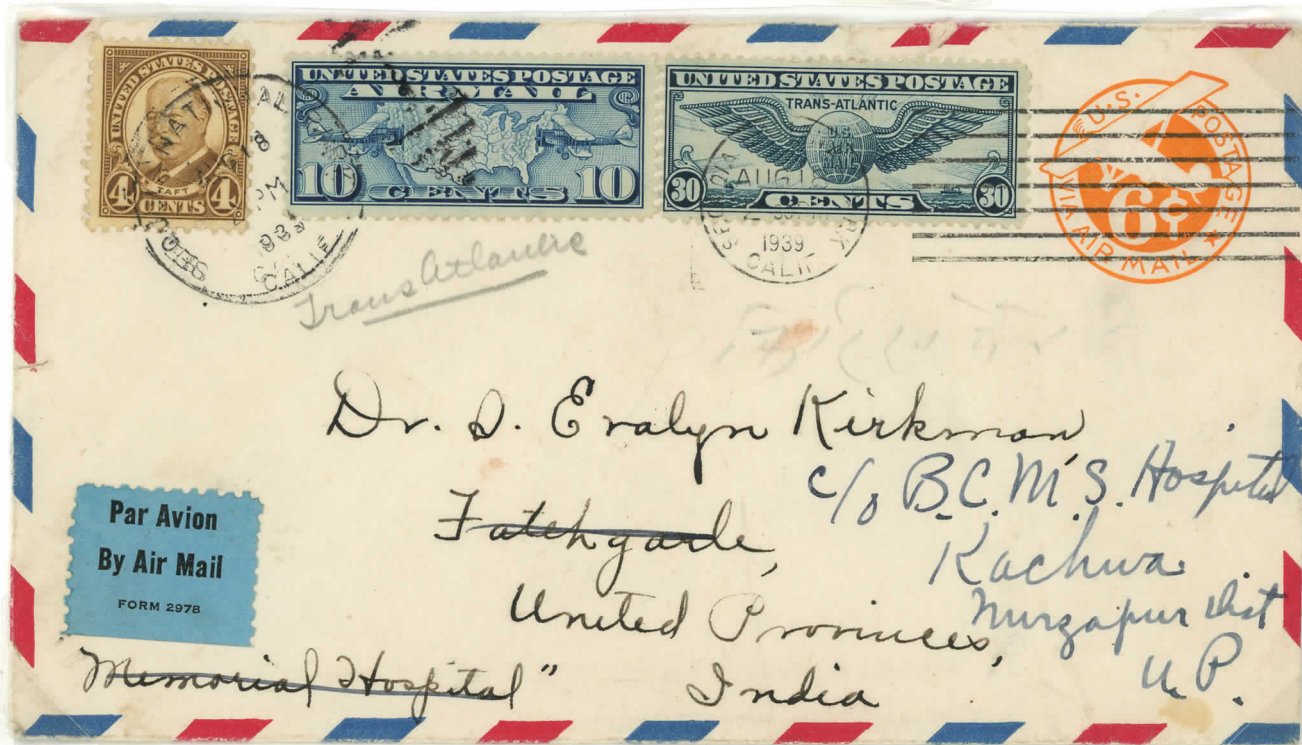 UNITED STATES POSTAGE
TAFT
4 CENTS 4
UNITED STATES POSTAGE
AIR MAIL
10 CENTS 10
UNITED STATES POSTAGE
TRANS-ATLANTIC
U.S.
30 CENTS 30
U.S. POSTAGE
6¢
VIA AIR MAIL
PM
CALIF
AUG 18
1939
CALIF
TransAtlantic
Dr. S. Evalyn Kirkman,
c/o B.C.M.S. Hospital
Fatehgarh,
Kachwa
United Provinces,
Mirzapur Dist
U.P.
Memorial Hospital"
India
Par Avion
By Air Mail
FORM 2978